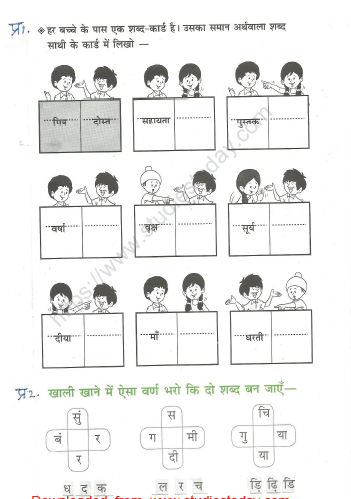 प्र1. ❖ हर बच्चे के पास एक शब्द-कार्ड है। उसका समान अर्थवाला शब्द
साथी के कार्ड में लिखो —
मित्र दोस्त सहायता पुस्तक
वर्षा वृक्ष सूर्य
दीया माँ धरती
प्र2. खाली खाने में ऐसा वर्ण भरो कि दो शब्द बन जाएँ—
सुं स चि
बं र ग मी गु या
र दी या
ध द क ल र च ड़ि ढ़ि डि
https://www.studiestoday.com
Downloaded from www.studiestoday.com